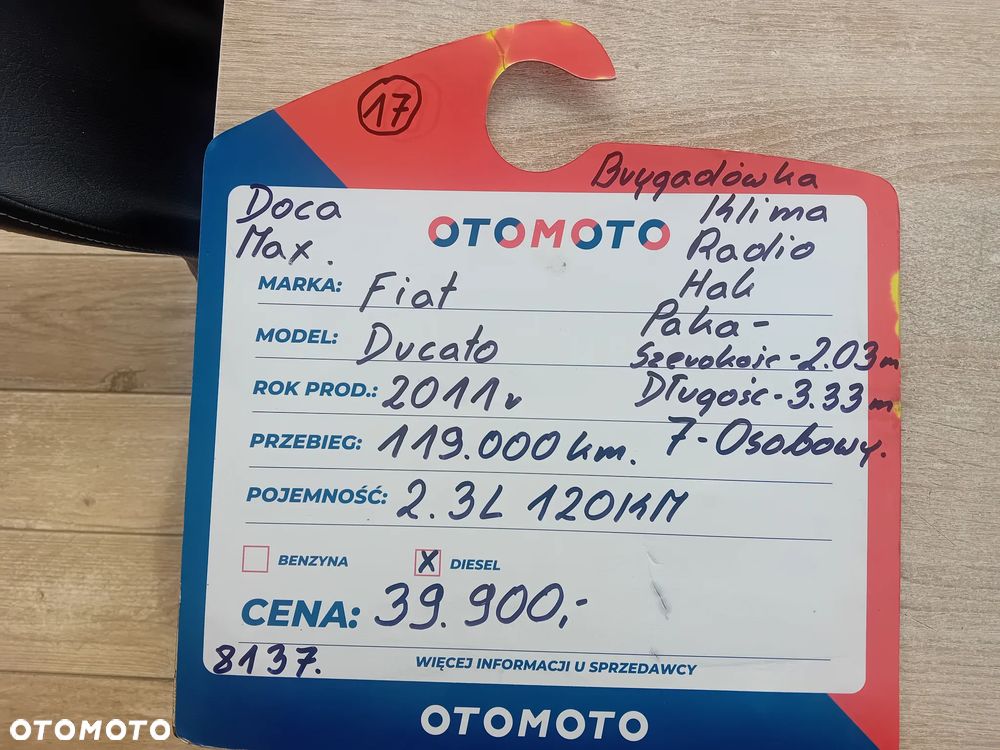 17
Brygadówka
Doca
Max.
OTOMOTO
Klima
Radio
Hak
Paka-
Szerokość-2.03m
Długość-3.33m
7-Osobowy.
MARKA: Fiat
MODEL: Ducato
ROK PROD.: 2011r
PRZEBIEG: 119.000km.
POJEMNOŚĆ: 2.3L 120KM
BENZYNA X DIESEL
CENA: 39.900,-
8137.
WIĘCEJ INFORMACJI U SPRZEDAWCY
OTOMOTO
OTOMOTO